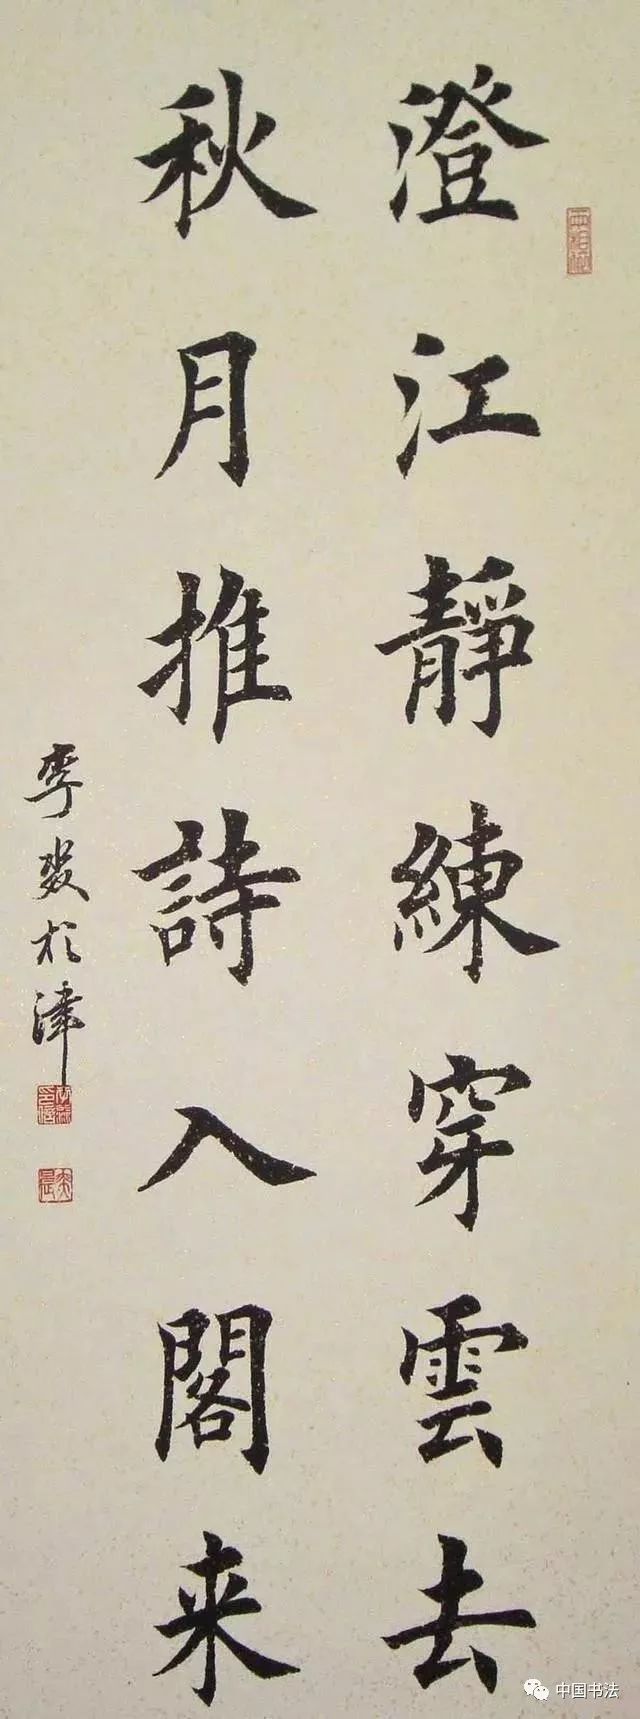 澄江靜練穿雲去
秋月推詩入閣来
李燚於津
中国书法